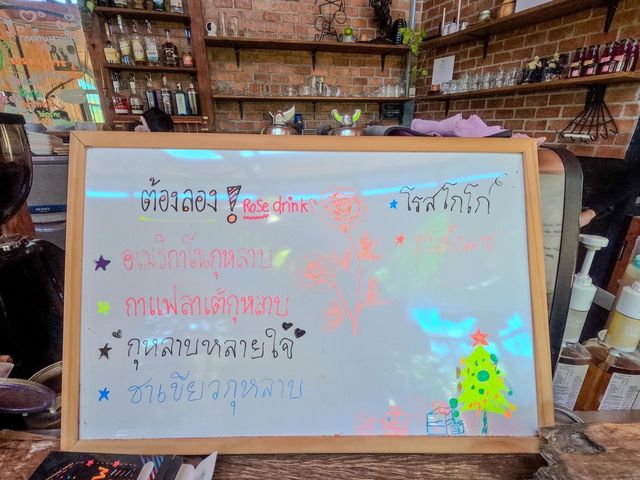 ต้องลอง ! Rose drink
อเมริกาโนกุหลาบ
กาแฟลาเต้กุหลาบ
"กุหลาบหลายใจ"
ชาเขียวกุหลาบ
โรสโกโก้